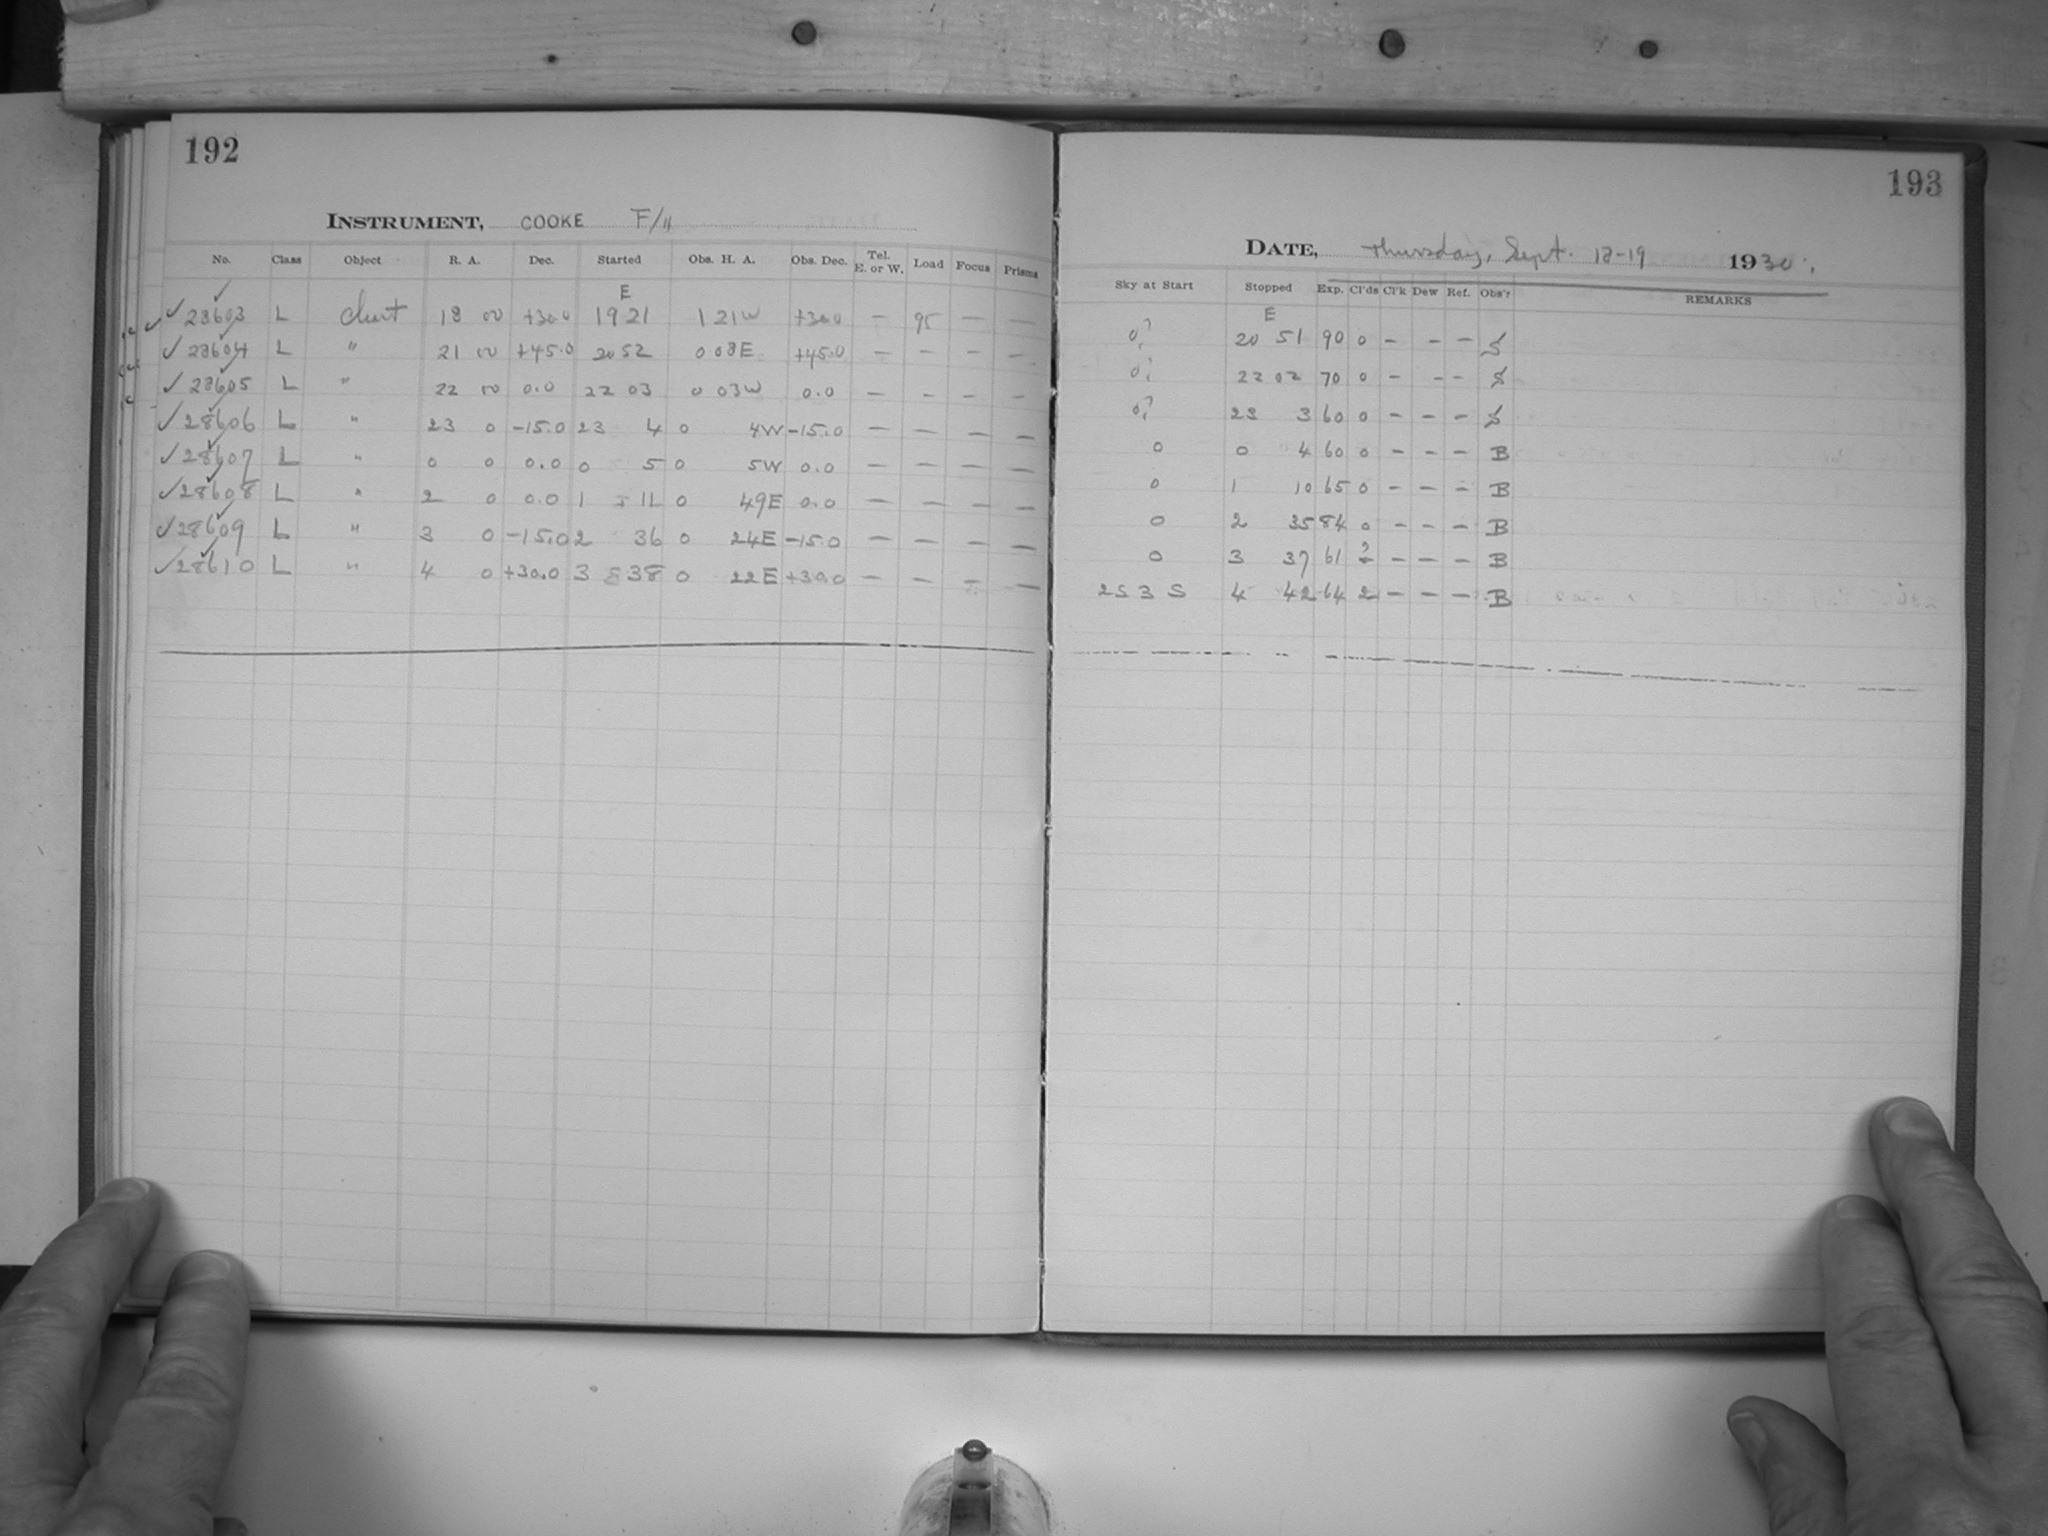 192
INSTRUMENT, COOKE F/11
No. Class Object R. A. Dec. Started Obs. H. A. Obs. Dec. Tel. E. or W. Load Focus Prisms
E
✓ 28603 L chart 18 00 +30.0 19 21 1 21W +30.0 — 95 — —
✓ 28604 L " 21 00 +45.0 20 52 0 08E +45.0 — — — —
✓ 28605 L " 22 00 0.0 22 03 0 03W 0.0 — — — —
✓ 28606 L " 23 0 -15.0 23 4 0 4W -15.0 — — — —
✓ 28607 L " 0 0 0.0 0 5 0 5W 0.0 — — — —
✓ 28608 L " 2 0 0.0 1 11 0 49E 0.0 — — — —
✓ 28609 L " 3 0 -15.0 2 36 0 24E -15.0 — — — —
✓ 28610 L " 4 0 +30.0 3 38 0 22E +30.0 — — — —
193
DATE, Thursday, Sept. 18-19 1930.
Sky at Start Stopped Exp. Cl'ds Cl'k Dew Ref. Obs'r REMARKS
E
0? 20 51 90 0 — — — S
0? 22 02 70 0 — — — S
0? 23 3 60 0 — — — S
0 0 4 60 0 — — — B
0 1 10 65 0 — — — B
0 2 35 84 0 — — — B
0 3 37 61 ? — — — B
2S 3 S 4 42 64 2 — — — B